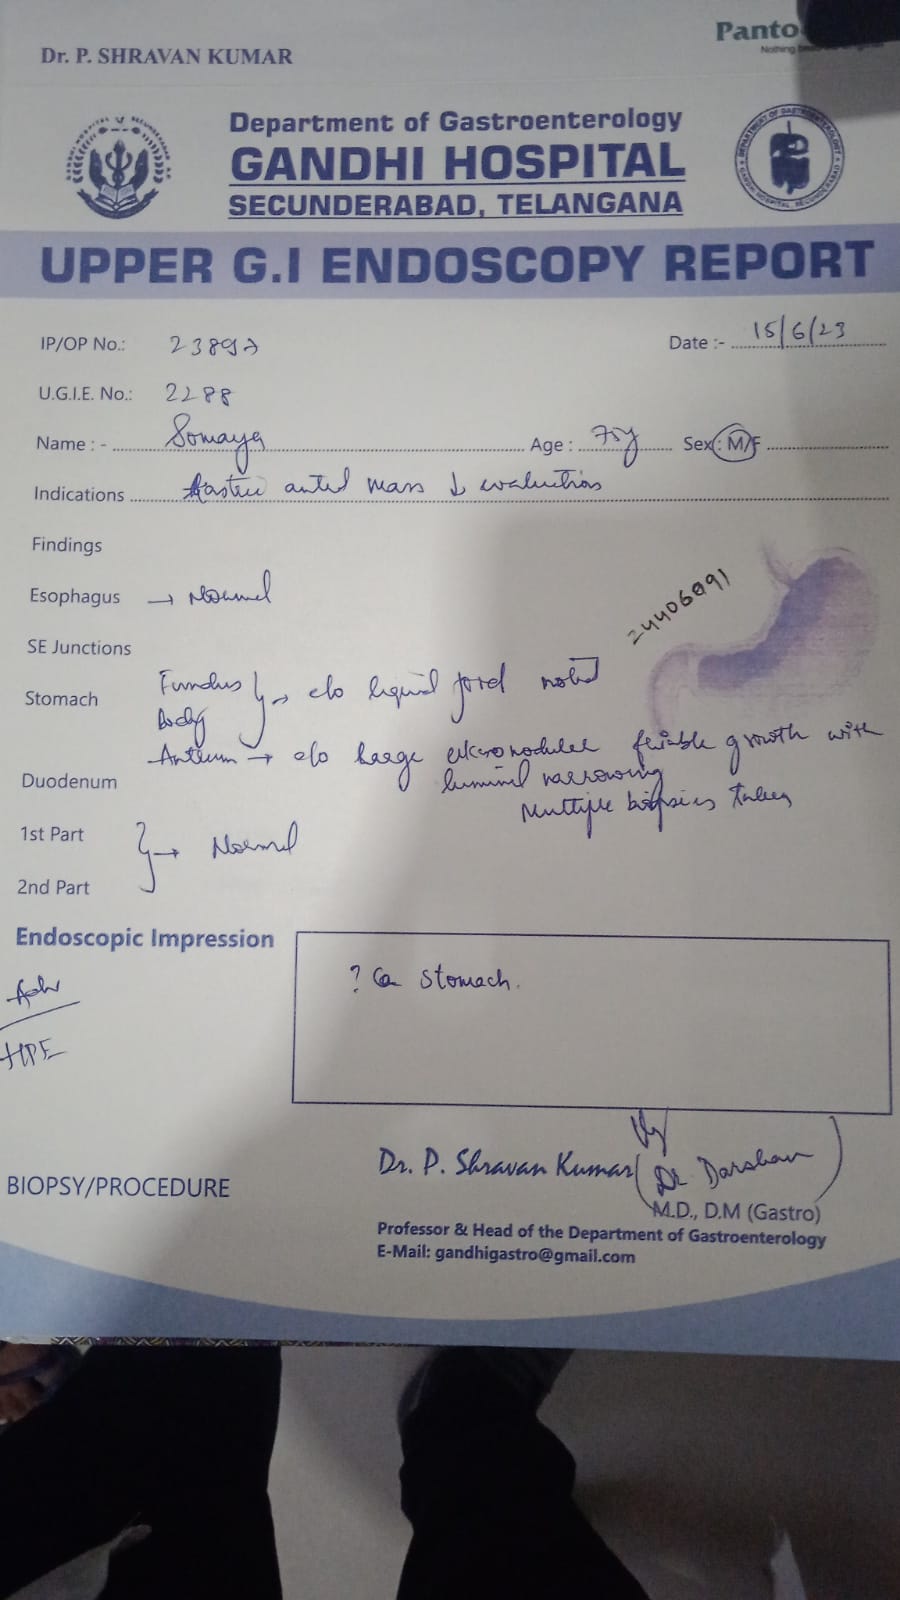 Dr. P. SHRAVAN KUMAR
Panto
Nothing
Department of Gastroenterology
GANDHI HOSPITAL
SECUNDERABAD, TELANGANA
DEPARTMENT OF GASTROENTEROLOGY
GANDHI HOSPITAL, SECUNDERABAD
UPPER G.I ENDOSCOPY REPORT
IP/OP No.:
Date :- 15/6/23
U.G.I.E. No.: 2288
Name : - Somaya Age : Sex : M/F
Indications mass evaluation
Findings
Esophagus → Normal
24406091
SE Junctions
Stomach Fundus → e/o liquid food noted
Body
Antrum → e/o large friable growth with
luminal narrowing
Duodenum
Multiple biopsies taken
1st Part → Normal
2nd Part
Endoscopic Impression
? Ca Stomach.
Adv
HPE
Dr. P. Shravan Kumar (Dr Darshan)
BIOPSY/PROCEDURE
M.D., D.M (Gastro)
Professor & Head of the Department of Gastroenterology
E-Mail: gandhigastro@gmail.com